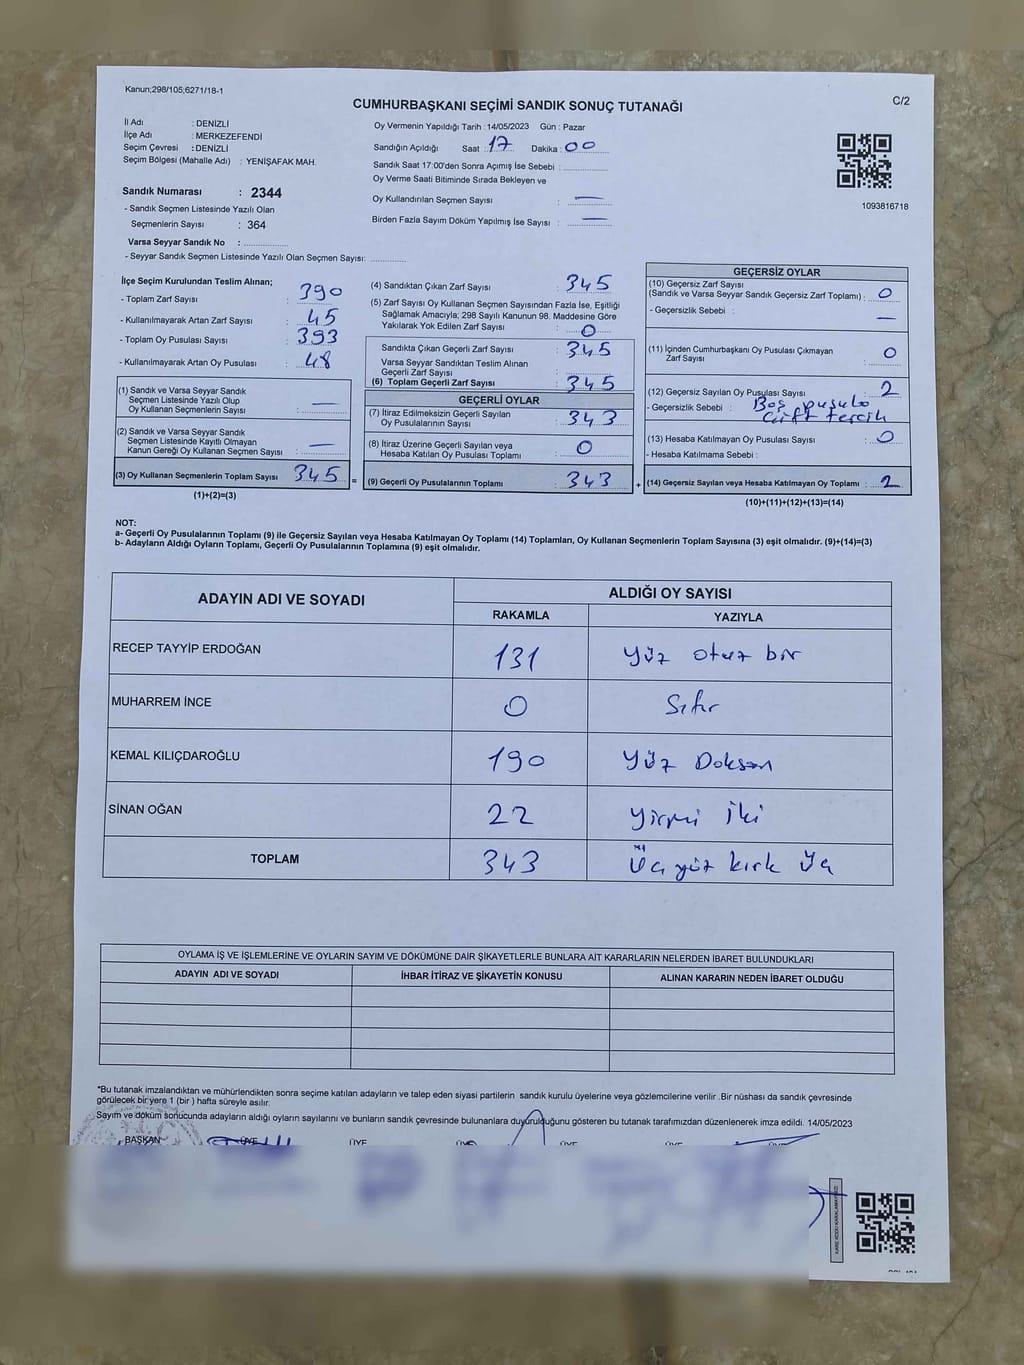 Kanun;298/105;6271/18-1
C/2
CUMHURBAŞKANI SEÇİMİ SANDIK SONUÇ TUTANAĞI
İl Adı : DENİZLİ
İlçe Adı : MERKEZEFENDİ
Seçim Çevresi : DENİZLİ
Seçim Bölgesi (Mahalle Adı) : YENİŞAFAK MAH.
Sandık Numarası : 2344
- Sandık Seçmen Listesinde Yazılı Olan
Seçmenlerin Sayısı : 364
Varsa Seyyar Sandık No :
- Seyyar Sandık Seçmen Listesinde Yazılı Olan Seçmen Sayısı:
Oy Vermenin Yapıldığı Tarih : 14/05/2023 Gün : Pazar
Sandığın Açıldığı Saat : 17 Dakika : 00
Sandık Saat 17:00'den Sonra Açımış İse Sebebi :
Oy Verme Saati Bitiminde Sırada Bekleyen ve
Oy Kullandırılan Seçmen Sayısı : —
Birden Fazla Sayım Döküm Yapılmış İse Sayısı : —
1093816718
İlçe Seçim Kurulundan Teslim Alınan;
- Toplam Zarf Sayısı : 390
- Kullanılmayarak Artan Zarf Sayısı : 45
- Toplam Oy Pusulası Sayısı : 393
- Kullanılmayarak Artan Oy Pusulası : 48
(1) Sandık ve Varsa Seyyar Sandık
Seçmen Listesinde Yazılı Olup
Oy Kullanan Seçmenlerin Sayısı : —
(2) Sandık ve Varsa Seyyar Sandık
Seçmen Listesinde Kayıtlı Olmayan
Kanun Gereği Oy Kullanan Seçmen Sayısı : —
(3) Oy Kullanan Seçmenlerin Toplam Sayısı : 345
(1)+(2)=(3)
(4) Sandıktan Çıkan Zarf Sayısı : 345
(5) Zarf Sayısı Oy Kullanan Seçmen Sayısından Fazla İse, Eşitliği
Sağlamak Amacıyla; 298 Sayılı Kanunun 98. Maddesine Göre
Yakılarak Yok Edilen Zarf Sayısı : 0
Sandıkta Çıkan Geçerli Zarf Sayısı : 345
Varsa Seyyar Sandıktan Teslim Alınan
Geçerli Zarf Sayısı :
(6) Toplam Geçerli Zarf Sayısı : 345
GEÇERLİ OYLAR
(7) İtiraz Edilmeksizin Geçerli Sayılan
Oy Pusulalarının Sayısı : 343
(8) İtiraz Üzerine Geçerli Sayılan veya
Hesaba Katılan Oy Pusulası Toplamı : 0
= (9) Geçerli Oy Pusulalarının Toplamı : 343 +
GEÇERSİZ OYLAR
(10) Geçersiz Zarf Sayısı
(Sandık ve Varsa Seyyar Sandık Geçersiz Zarf Toplamı) : 0
- Geçersizlik Sebebi : —
(11) İçinden Cumhurbaşkanı Oy Pusulası Çıkmayan
Zarf Sayısı : 0
(12) Geçersiz Sayılan Oy Pusulası Sayısı : 2
- Geçersizlik Sebebi : Boş pusula
Çift tercih
(13) Hesaba Katılmayan Oy Pusulası Sayısı : 0
- Hesaba Katılmama Sebebi :
(14) Geçersiz Sayılan veya Hesaba Katılmayan Oy Toplamı : 2
(10)+(11)+(12)+(13)=(14)
NOT:
a- Geçerli Oy Pusulalarının Toplamı (9) ile Geçersiz Sayılan veya Hesaba Katılmayan Oy Toplamı (14) Toplamları, Oy Kullanan Seçmenlerin Toplam Sayısına (3) eşit olmalıdır. (9)+(14)=(3)
b- Adayların Aldığı Oyların Toplamı, Geçerli Oy Pusulalarının Toplamına (9) eşit olmalıdır.
ADAYIN ADI VE SOYADI ALDIĞI OY SAYISI
RAKAMLA YAZIYLA
RECEP TAYYİP ERDOĞAN 131 Yüz otuz bir
MUHARREM İNCE 0 Sıfır
KEMAL KILIÇDAROĞLU 190 Yüz Doksan
SİNAN OĞAN 22 Yirmi İki
TOPLAM 343 Üç yüz kırk Üç
OYLAMA İŞ VE İŞLEMLERİNE VE OYLARIN SAYIM VE DÖKÜMÜNE DAİR ŞİKAYETLERLE BUNLARA AİT KARARLARIN NELERDEN İBARET BULUNDUKLARI
ADAYIN ADI VE SOYADI İHBAR İTİRAZ VE ŞİKAYETİN KONUSU ALINAN KARARIN NEDEN İBARET OLDUĞU
*Bu tutanak imzalandıktan ve mühürlendikten sonra seçime katılan adayların ve talep eden siyasi partilerin sandık kurulu üyelerine veya gözlemcilerine verilir .Bir nüshası da sandık çevresinde
görülecek bir yere 1 (bir ) hafta süreyle asılır.
Sayım ve döküm sonucunda adayların aldığı oyların sayılarını ve bunların sandık çevresinde bulunanlara duyurulduğunu gösteren bu tutanak tarafımızdan düzenlenerek imza edildi. 14/05/2023
BAŞKAN ÜYE ÜYE ÜYE ÜYE ÜYE ÜYE